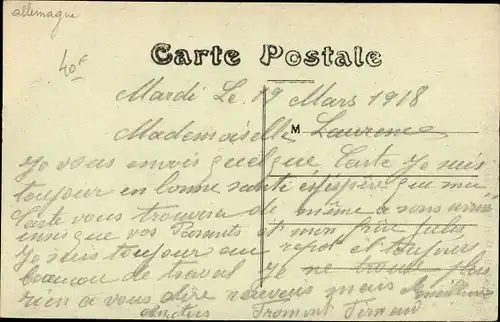 allemagne
40F
Carte Postale
Mardi Le 19 Mars 1918
M
Mademoiselle Laurence
Je vous envois quelque Carte Je suis
toujour en bonne santé Jéspère que ma
Carte vous trouvera de même a sons arrivé
ensi que vos Parants et mon frère Jules
Je suis toujour au repos et toujour
beaucou de travail Je ne trouve plus
rien a vous dire recevez mais Meilleure
Amitiés Fromont Fernand